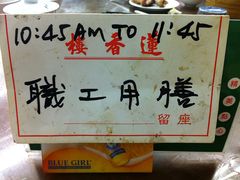 10:45 AM TO 11:45
蓮香樓
職工用膳
留座
BLUE GIRL